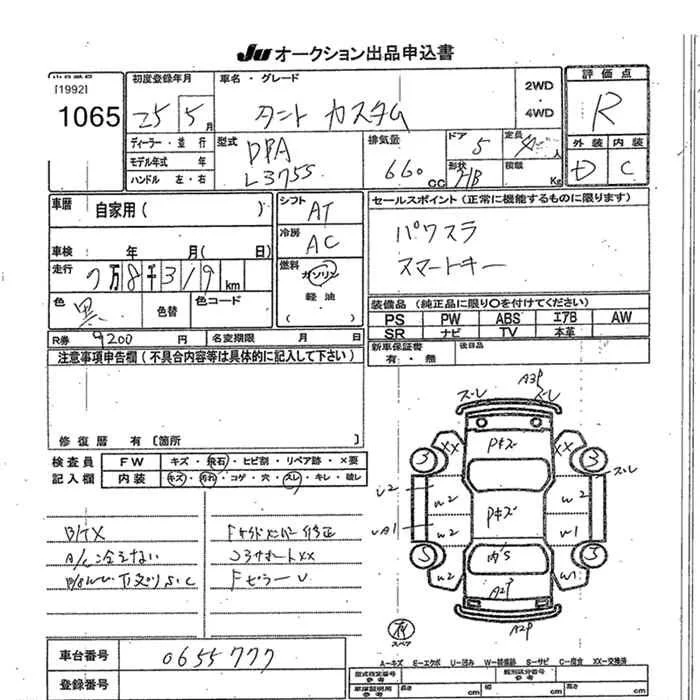 JU オークション出品申込書
出品番号
[1992]
1065
初度登録年月
25 5月
車名・グレード
タント カスタム
2WD
・
4WD
評価点
R
ディーラー・並行
モデル年式 年
ハンドル 左・右
型式
DBA
L375S
排気量
660cc
ドア
5
定員
4人
形状
HB
積載
Kg
外装 内装
D C
車歴
自家用( )
シフト
AT
セールスポイント(正常に機能するものに限ります)
パワスラ
スマートキー
車検 年 月( 日)
冷房
AC
走行
7万8千319km
燃料
ガソリン
・
軽油
( )
色
黒
色替
色コード
装備品(純正品に限り○を付けてください)
PS PW ABS エアB AW
SR ナビ TV 本革
R券 9200円
名変期限 月 日
新車保証書
有・無
後日品
注意事項申告欄(不具合内容等は具体的に記入して下さい)
修復歴 有〔箇所 〕
検査員
記入欄
FW キズ・飛石・ヒビ割・リペア跡・×要
内装 キズ・汚れ・コゲ・穴・スレ・キレ・破レ
A/C冷えない
Fサイドメンバー修正
コアサポートXX
Fピラーu
ズレ
A3P
ズレ
Pキズ
XX
XX
3
3
ズレ
u2
w2
w2
Pキズ
uA1
w2
w1
5
5
内S
w2
w1
A2P
A2P
スペア
A-キズ E-エクボ U-凹み W-補修跡 S-サビ C-腐食 XX-交換済
車台番号
0655777
登録番号
型式指定番号
参考
類別区分番号
参考
車庫証明用
参考
長さ
cm
幅
cm
高さ
cm